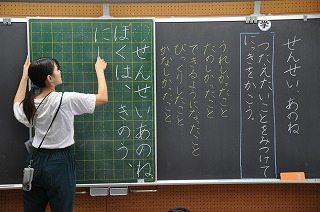 せんせい、あのね
学
つたえたいことをみつけて
にっきをかこう。
うれしかったこと
たのしかったこと
できるようになったこと
びっくりしたこと
かなしかったこと
せんせいあのね
ぼくは、きのう、
に